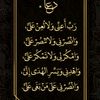 دعاء
رَبِّ أَعِنِّي وَلَا تُعِنْ عَلَيَّ
وَانْصُرْنِي وَلَا تَنْصُرْ عَلَيَّ
وَامْكُرْ لِي وَلَا تَمْكُرْ عَلَيَّ
وَاهْدِنِي وَيَسِّرِ الْهُدَى إِلَيَّ
وَانْصُرْنِي عَلَى مَنْ بَغَى عَلَيَّ